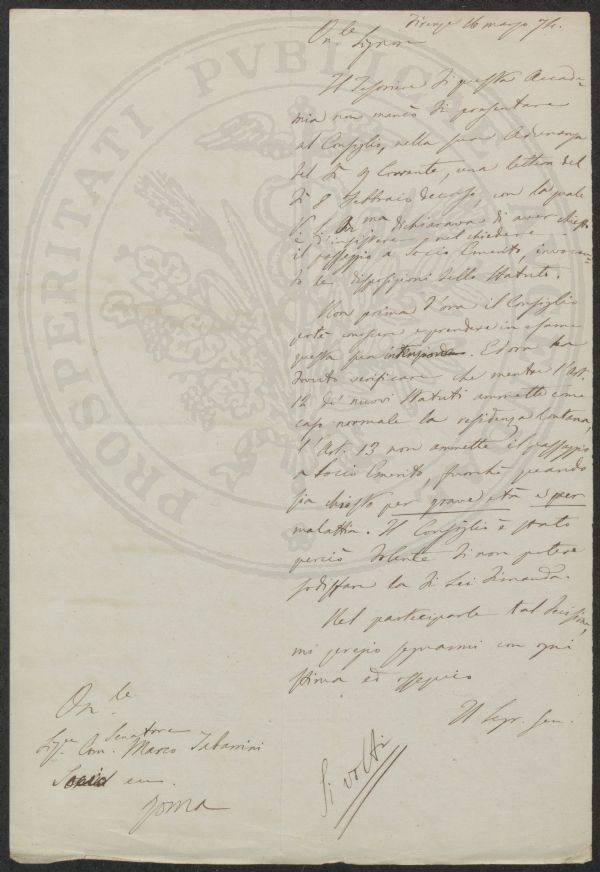 Firenze 16 marzo 74.
On.le Signore
Il Tesoriere di questa Accade-
mia non mancò di presentare
al Consiglio, nella sua Adunanza
del dì 9 Corrente, una lettera del
dì 8 Febbraio decorso, con la quale
V. S. Ill.ma dichiarava di aver chiesto
e d'insistere nel chiedere
il passaggio a Socio Emerito, invocan-
do le disposizioni dello Statuto.
Non prima d'ora il Consiglio
potè conoscere e prendere in esame
questa sua . Ed ora ha
dovuto verificare che mentre l'Art.
12 de' nuovi Statuti ammette come
caso normale la residenza lontana,
l'Art. 13 non ammette il passaggio
a Socio Emerito, fuorchè quando
sia chiesto per grave età o per
malattia. Il Consiglio è stato
perciò dolente di non potere
sodisfare la di Lei dimanda.
Nel parteciparle tal decisione,
mi pregio segnarmi con ogni
stima ed ossequio
Il Segr. Gen.
On.le
Senatore
Sig.r Com. Marco Tabarrini
Roma
Si volti
PROSPERITATI PVBLICAE